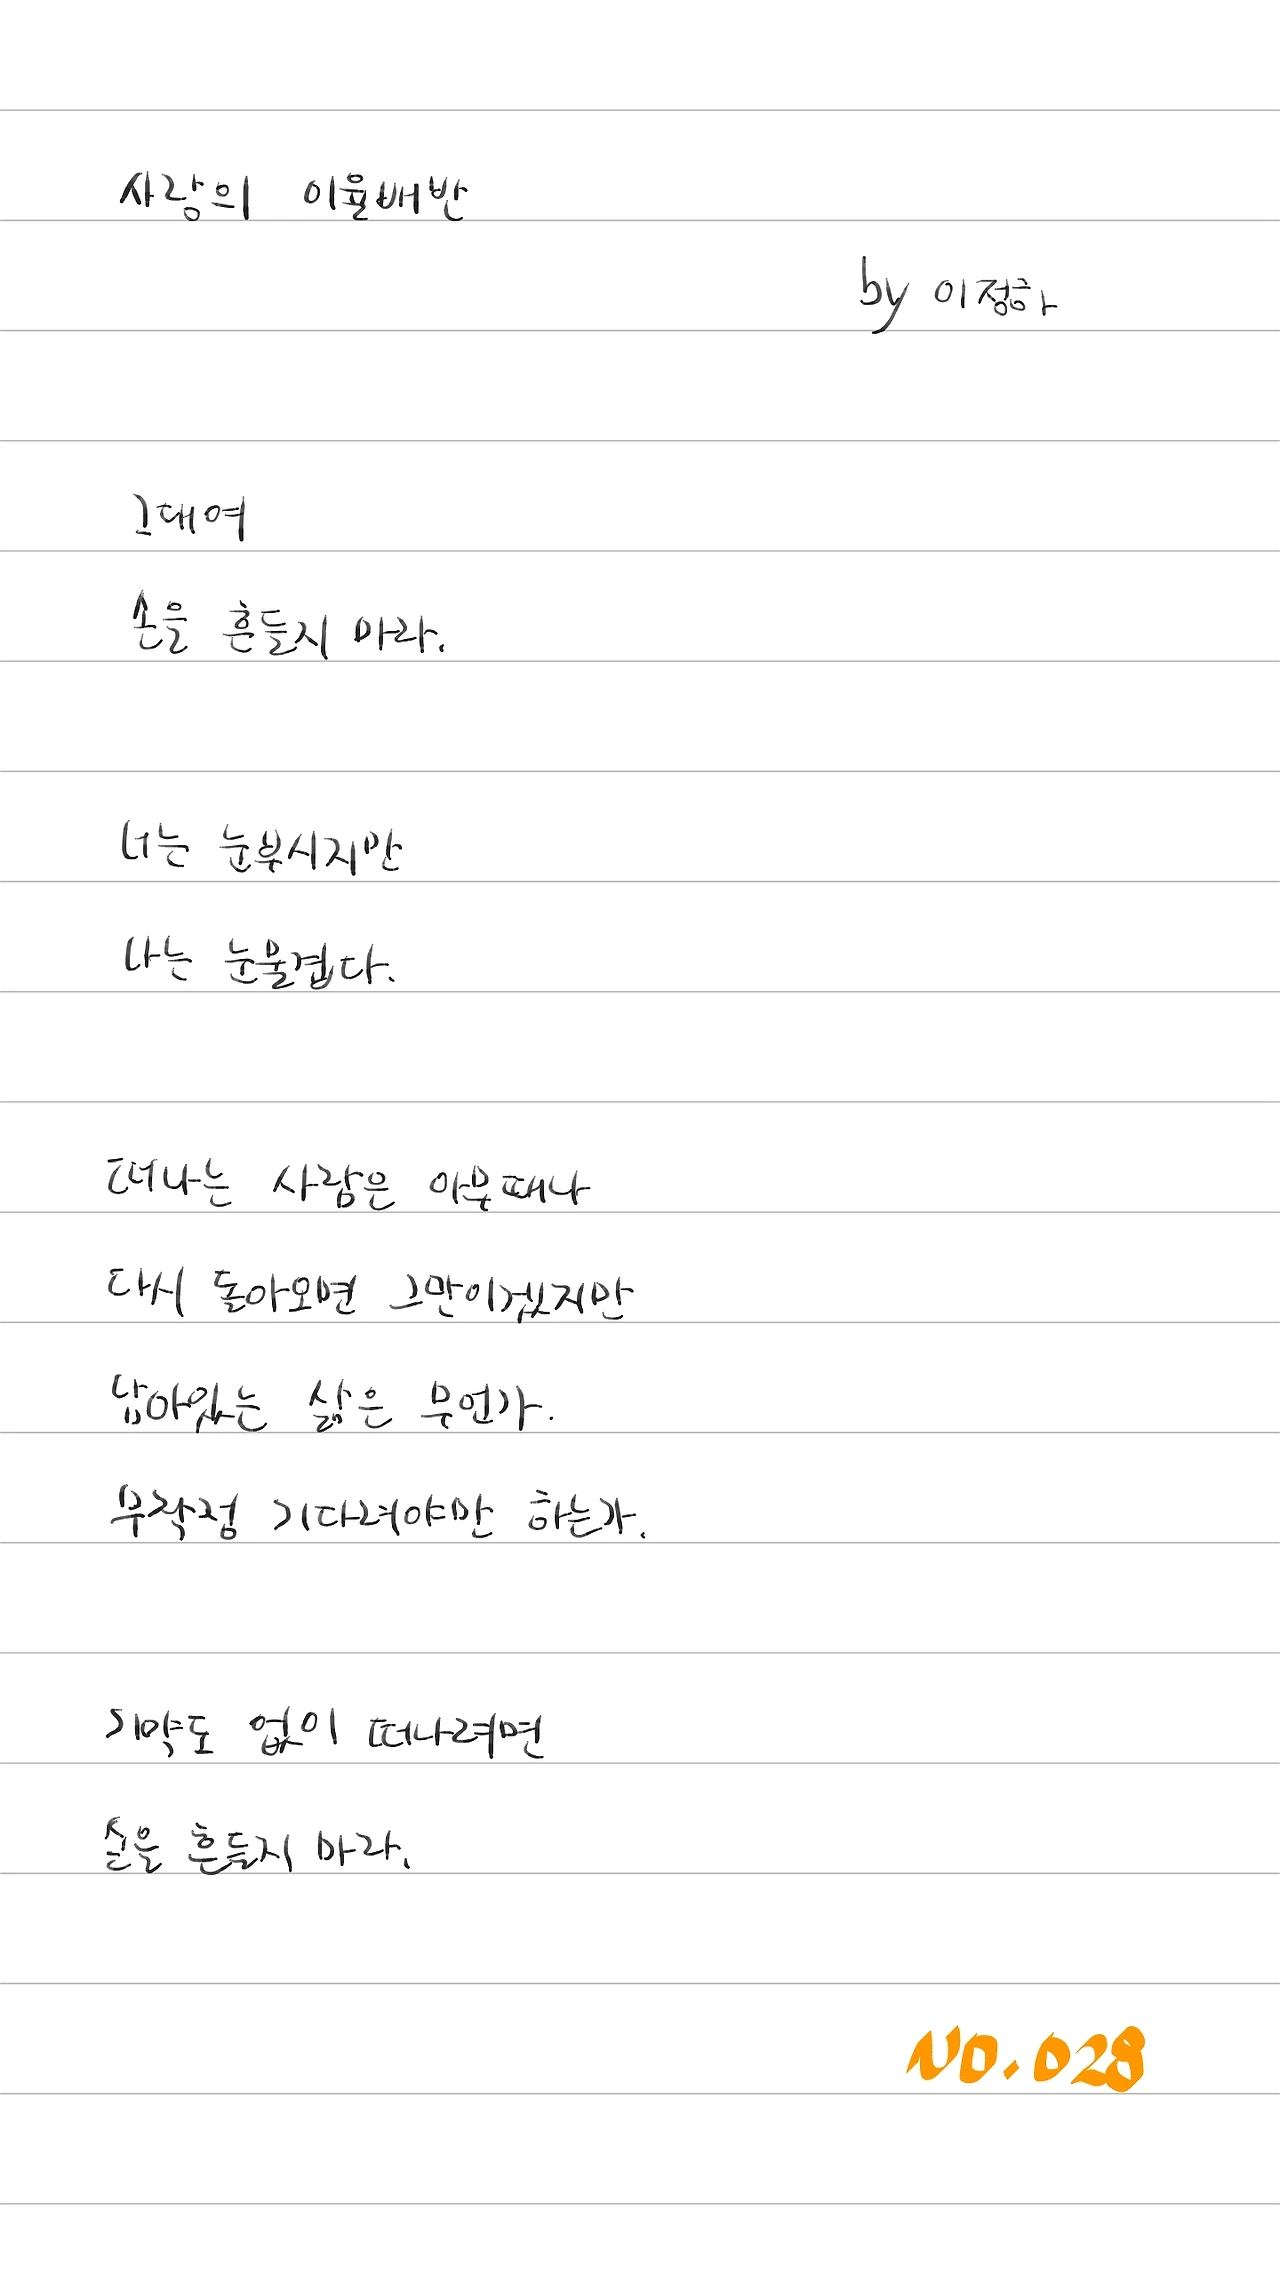 사랑의 이율배반
by 이정하
그대여
손을 흔들지 마라.
너는 눈부시지만
나는 눈물겹다.
떠나는 사람은 아무때나
다시 돌아오면 그만이겠지만
남아있는 삶은 무언가.
무작정 기다려야만 하는가.
기약도 없이 떠나려면
손을 흔들지 마라.
NO.028